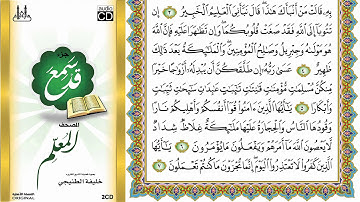 AUDIO
CD
جزء
قد سمع
المصحف
المعلم
خليفة الطنيجي
النسخة الأصلية
ORIGINAL
2CD
بِهِۦ قَالَتْ مَنْ أَنۢبَأَكَ هَٰذَا قَالَ نَبَّأَنِىَ ٱلْعَلِيمُ ٱلْخَبِيرُ ٣ إِن
تَتُوبَآ إِلَى ٱللَّهِ فَقَدْ صَغَتْ قُلُوبُكُمَا وَإِن تَظَٰهَرَا عَلَيْهِ فَإِنَّ ٱللَّهَ
هُوَ مَوْلَىٰهُ وَجِبْرِيلُ وَصَٰلِحُ ٱلْمُؤْمِنِينَ وَٱلْمَلَٰٓئِكَةُ بَعْدَ ذَٰلِكَ
ظَهِيرٌ ٤ عَسَىٰ رَبُّهُۥٓ إِن طَلَّقَكُنَّ أَن يُبْدِلَهُۥٓ أَزْوَٰجًا خَيْرًا
مِّنكُنَّ مُسْلِمَٰتٍ مُّؤْمِنَٰتٍ قَٰنِتَٰتٍ تَٰٓئِبَٰتٍ عَٰبِدَٰتٍ سَٰٓئِحَٰتٍ ثَيِّبَٰتٍ
وَأَبْكَارًا ٥ يَٰٓأَيُّهَا ٱلَّذِينَ ءَامَنُوا۟ قُوٓا۟ أَنفُسَكُمْ وَأَهْلِيكُمْ نَارًا
وَقُودُهَا ٱلنَّاسُ وَٱلْحِجَارَةُ عَلَيْهَا مَلَٰٓئِكَةٌ غِلَاظٌ شِدَادٌ
لَّا يَعْصُونَ ٱللَّهَ مَآ أَمَرَهُمْ وَيَفْعَلُونَ مَا يُؤْمَرُونَ ٦ يَٰٓأَيُّهَا
ٱلَّذِينَ كَفَرُوا۟ لَا تَعْتَذِرُوا۟ ٱلْيَوْمَ إِنَّمَا تُجْزَوْنَ مَا كُنتُمْ تَعْمَلُونَ ٧